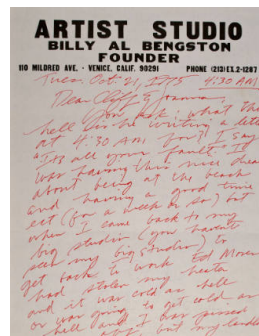 ARTIST STUDIO
BILLY AL BENGSTON
FOUNDER
110 MILDRED AVE. - VENICE, CALIF. 90291 PHONE (213) EX.2-1287
Tues. Oct. 21, 1975 4:30 AM
Dear Cliff & Joanna,
You ask what the
hell is he writing a lette
at 4:30 AM for? I say
"Its all your fault" I
was having this nice dream
about being at the beach
and having a good time
ect (for a week or so) but
when I came back to my
big studio (you havent
seen my big studio) to
get back to work Ed Moses
had stolen my heater
and it was cold as hell
or was going to get cold as
hell and I was pissed